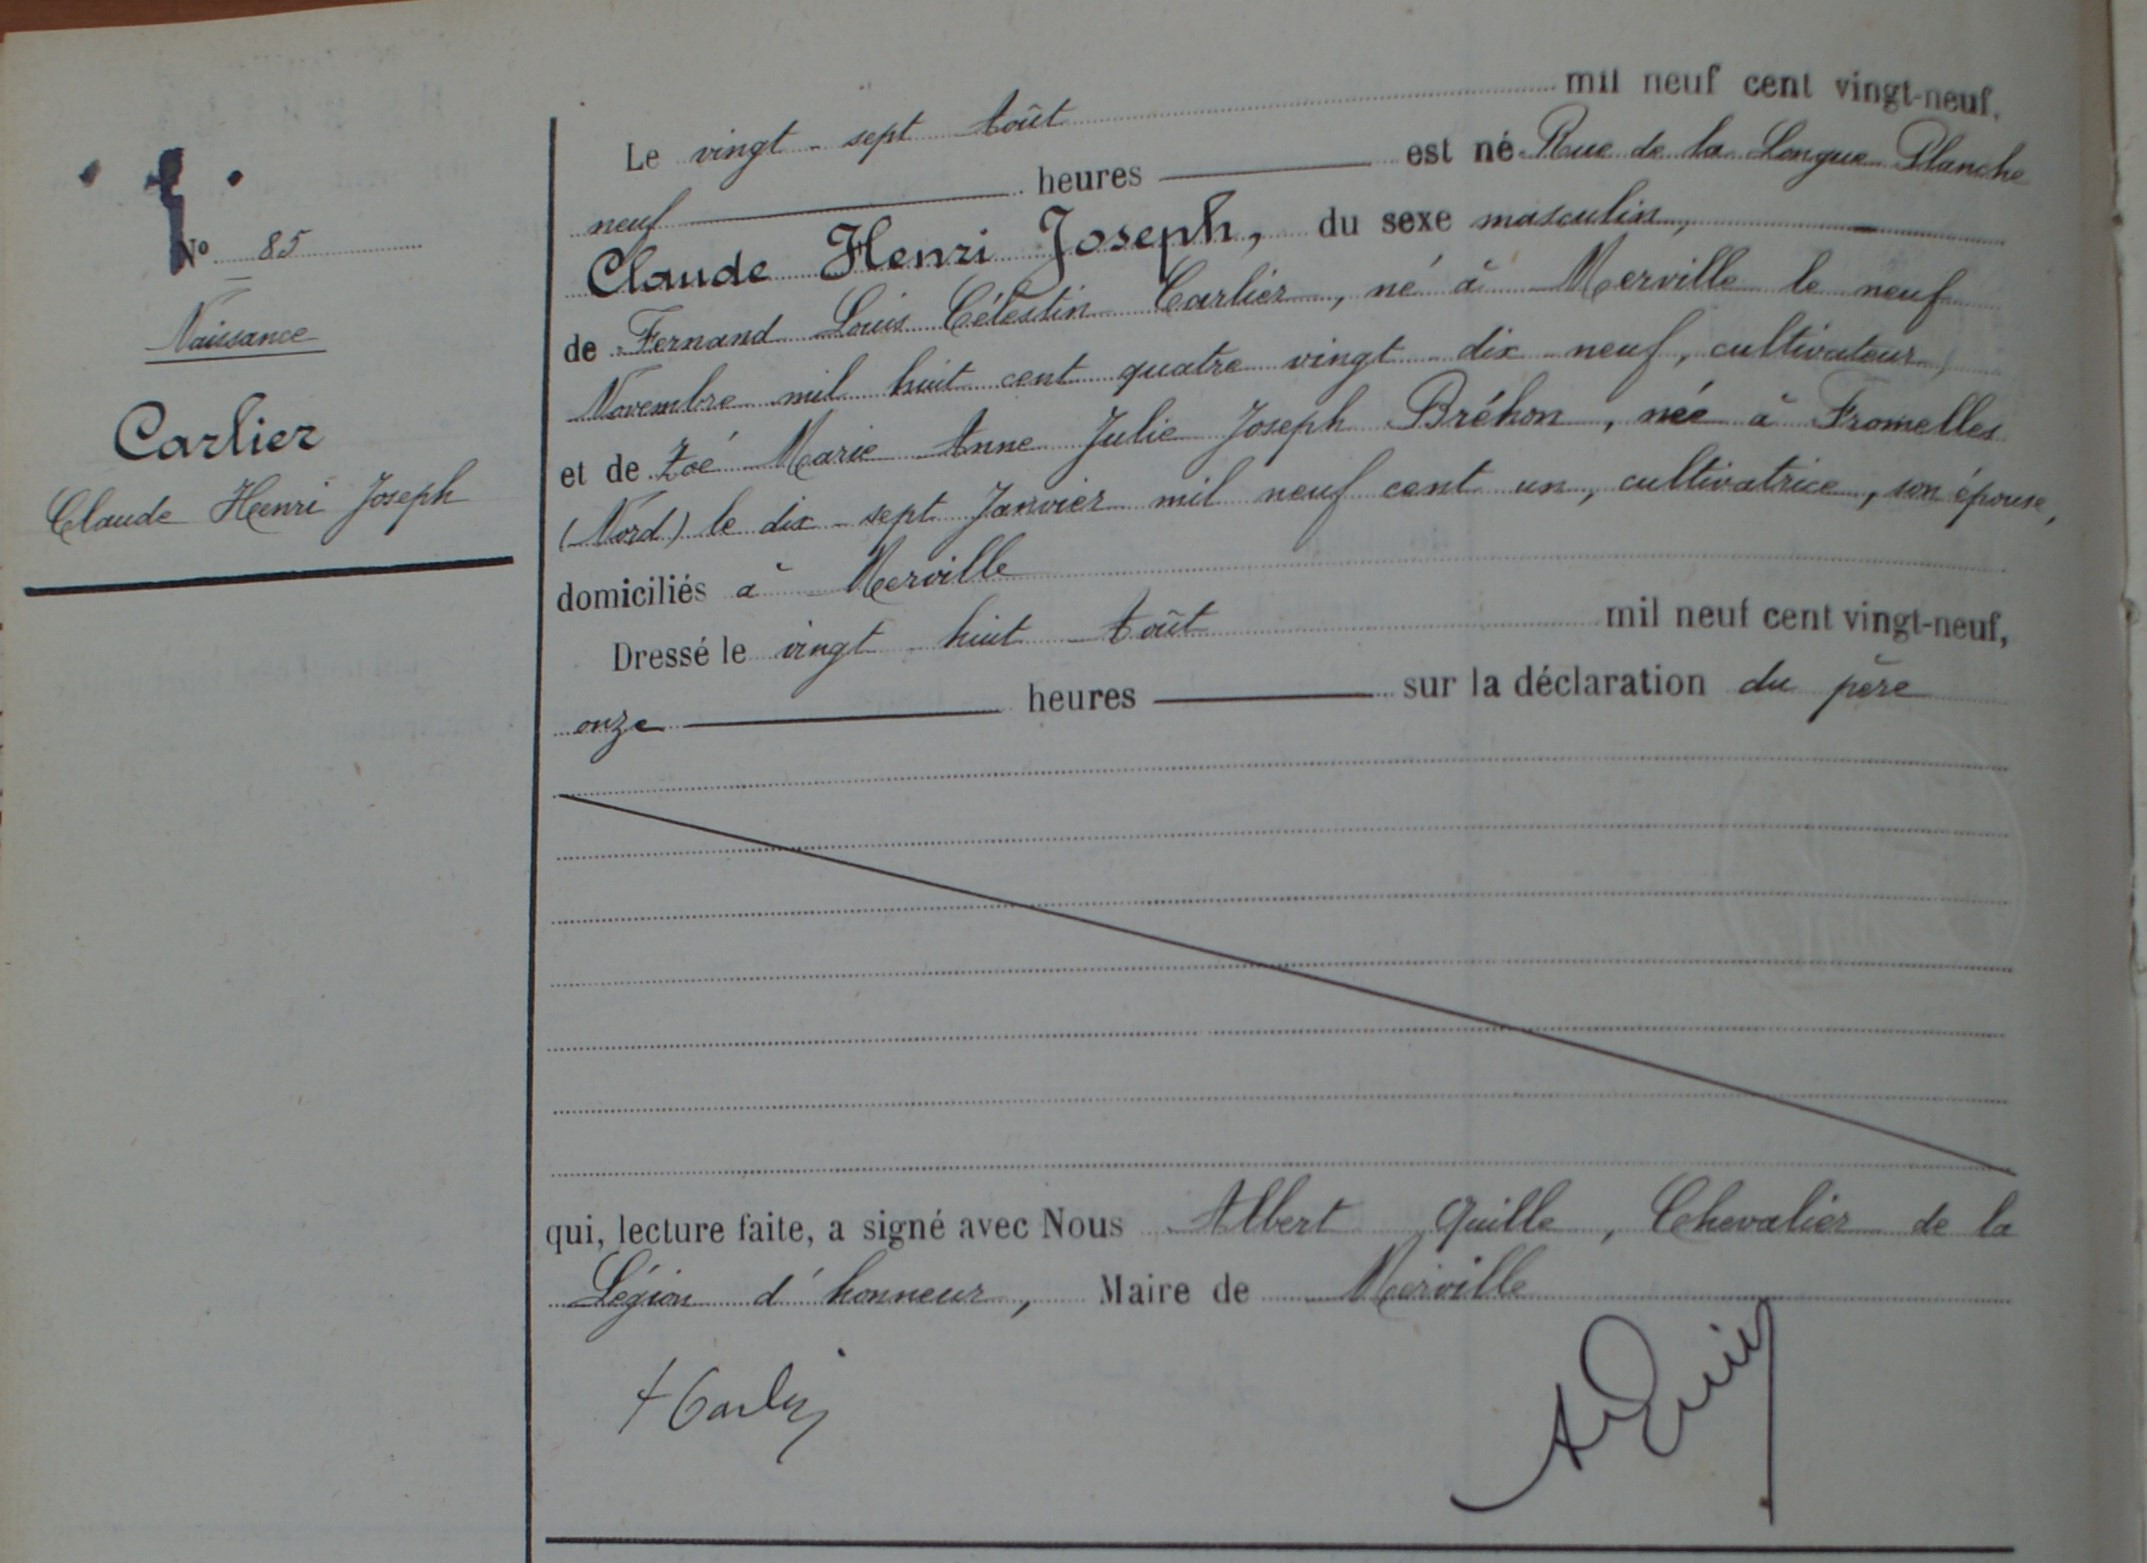 N° 85
Naissance
Carlier
Claude Henri Joseph
Le vingt-sept Août mil neuf cent vingt-neuf,
neuf heures est né Rue de la Longue Planche
Claude Henri Joseph, du sexe masculin,
de Fernand Louis Célestin Carlier, né à Merville le neuf
Novembre mil huit cent quatre vingt dix neuf, cultivateur,
et de Zoé Marie Anne Julie Joseph Bréhon, née à Fromelles
(Nord) le dix-sept Janvier mil neuf cent un, cultivatrice, son épouse,
domiciliés à Merville
Dressé le vingt huit Août mil neuf cent vingt-neuf,
onze heures sur la déclaration du père
qui, lecture faite, a signé avec Nous Albert Quille, Chevalier de la
Légion d'honneur, Maire de Merville